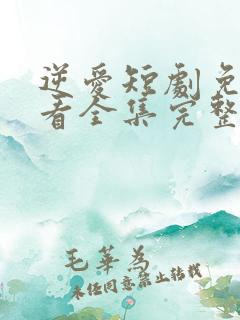 逆愛短劇免
看全集完整
毛華為
未經同意禁止转载